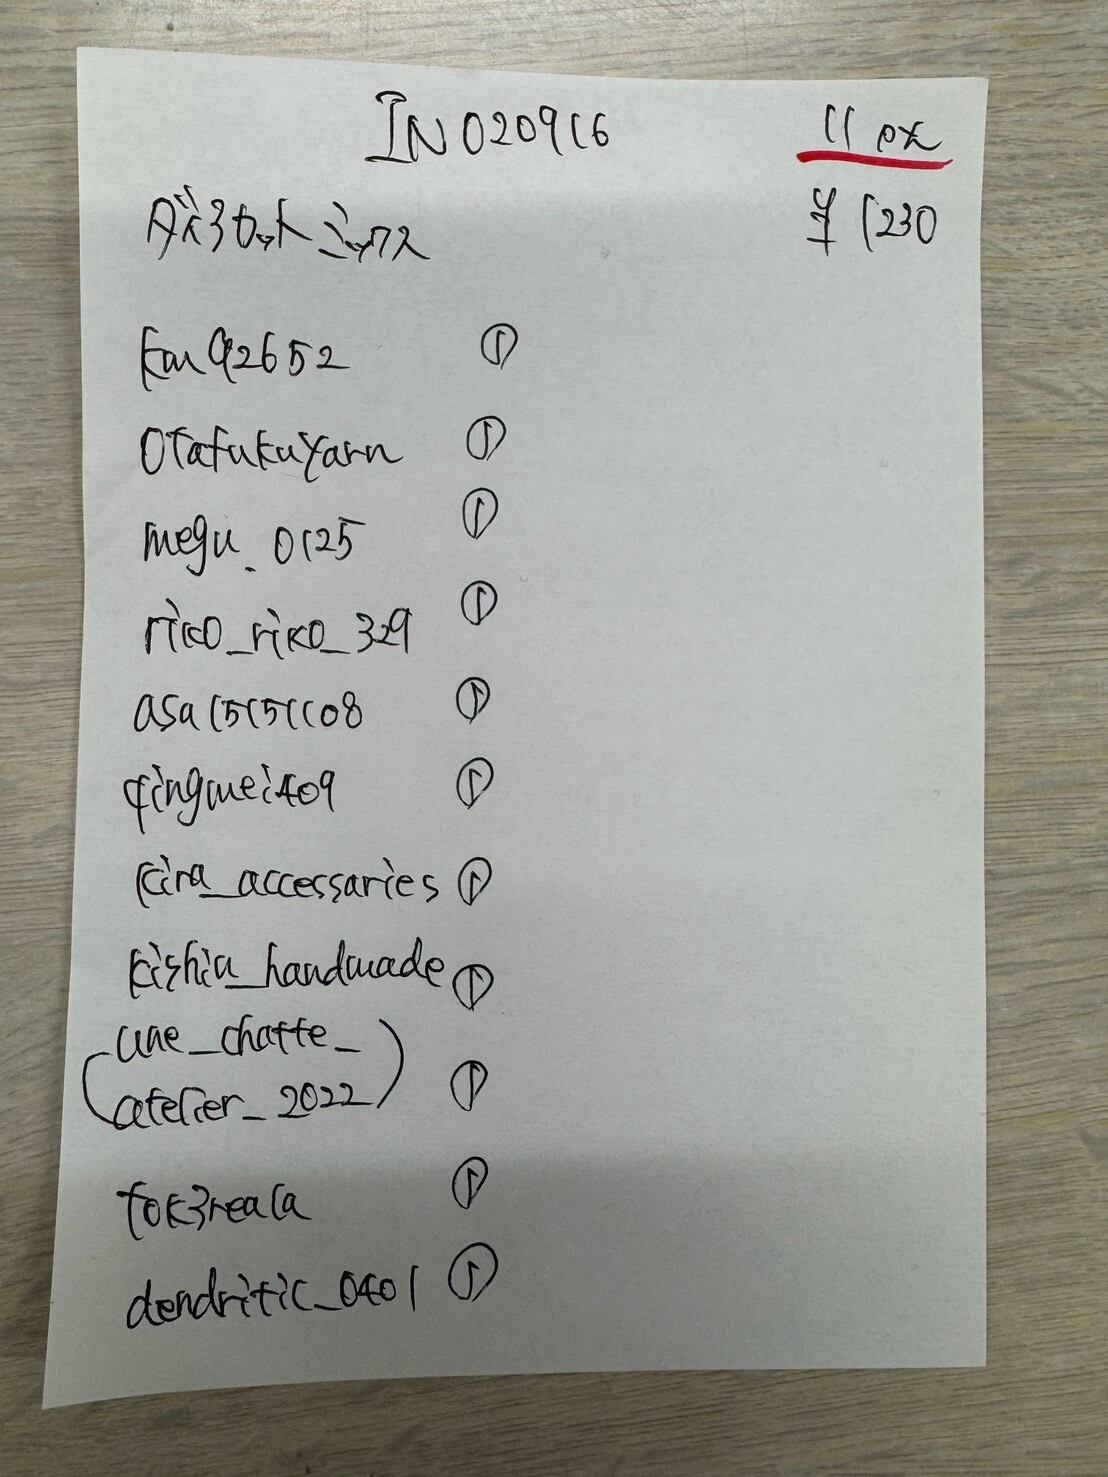 IN020916
11 px
¥1230
kmq2652 ①
otafukuyarn ①
megu_0125 ①
riko_riko_329 ①
asa15151108 ①
qingmei409 ①
kira_accessaries ①
kishiu_handmade ①
(une_chatte_
atelier_2022) ①
tok3reala ①
dendritic_0401 ①